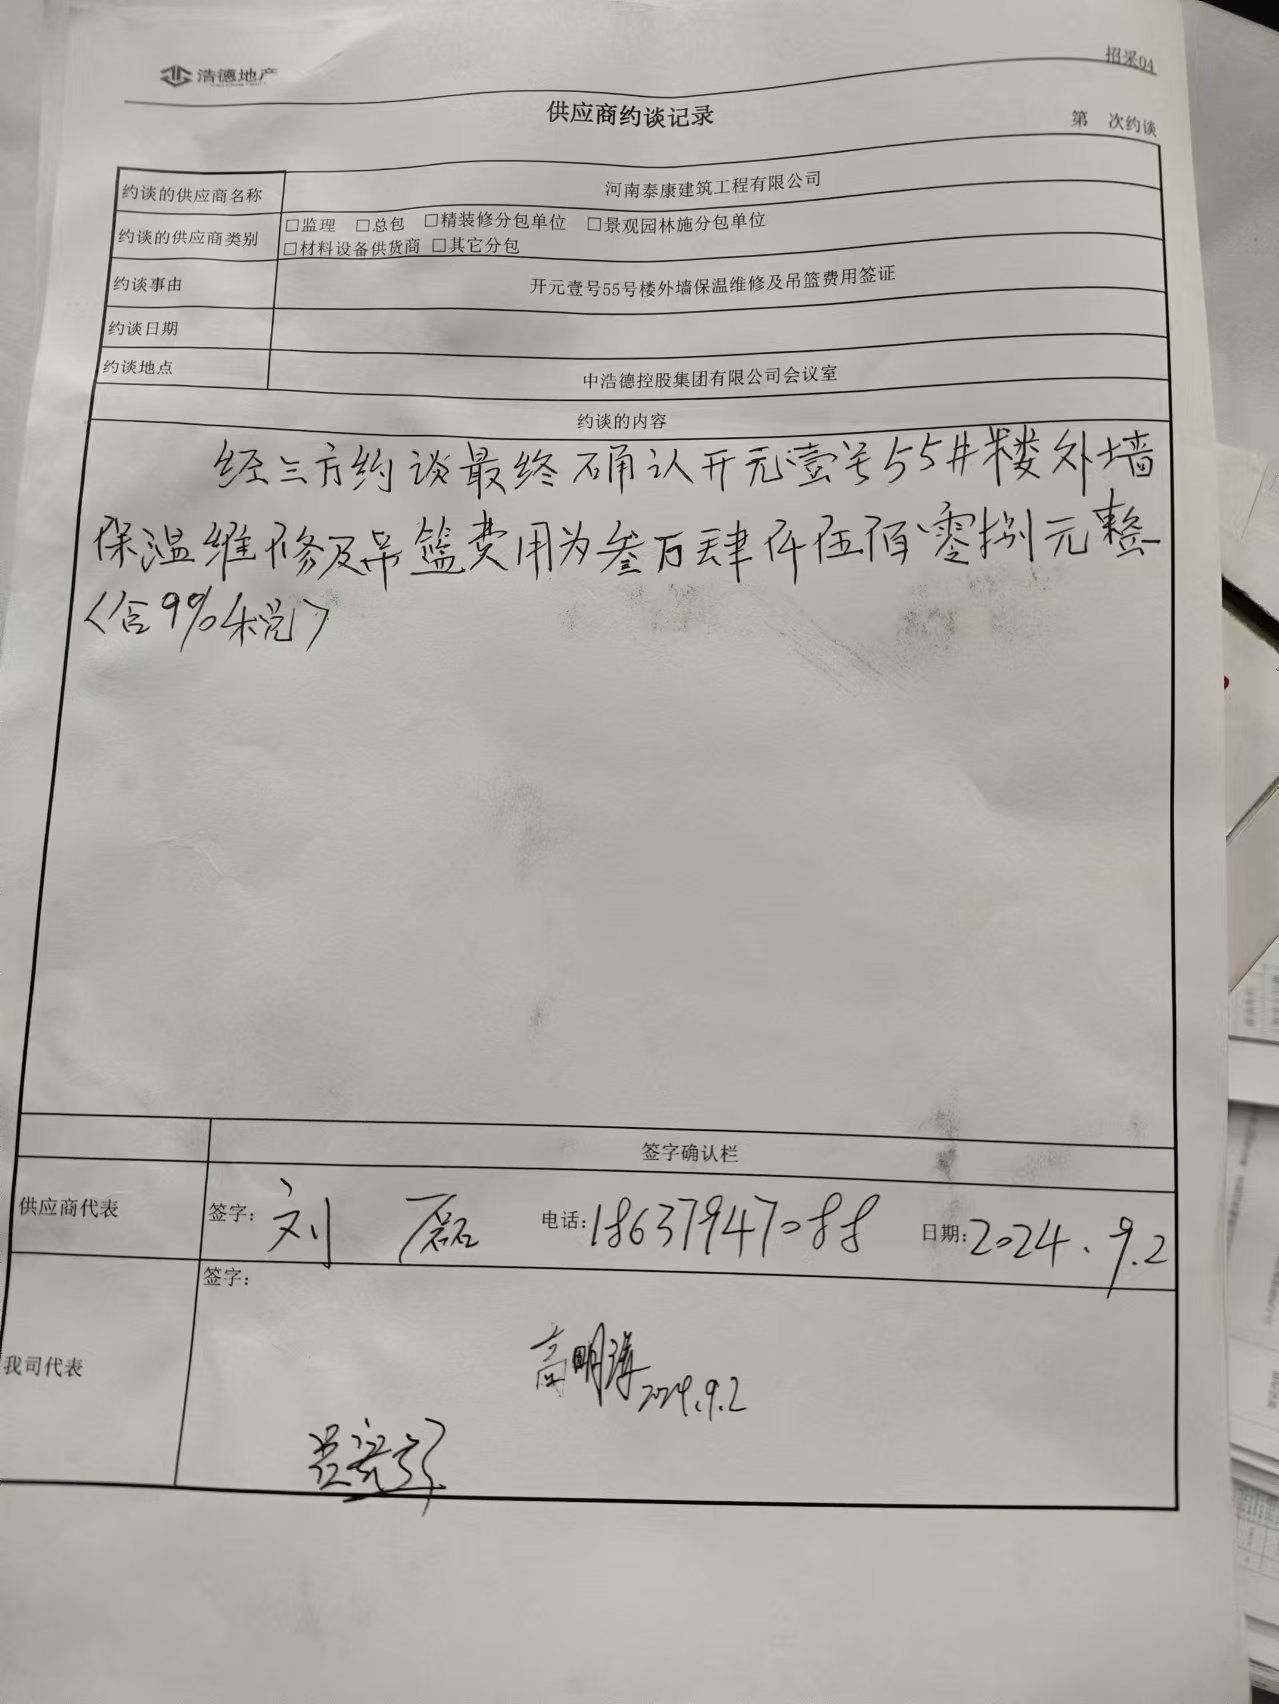 浩德地产
招采04
供应商约谈记录
第 次约谈
约谈的供应商名称 河南泰康建筑工程有限公司
约谈的供应商类别 □监理 □总包 □精装修分包单位 □景观园林施分包单位
□材料设备供货商 □其它分包
约谈事由 开元壹号55号楼外墙保温维修及吊篮费用签证
约谈日期
约谈地点 中浩德控股集团有限公司会议室
约谈的内容
经三方约谈最终确认开元壹号55#楼外墙
保温维修及吊篮费用为叁万肆仟伍佰零捌元整
<含9%税>
签字确认栏
供应商代表 签字: 刘磊 电话: 18637947088 日期: 2024.9.2
签字:
我司代表
高明海 2024.9.2